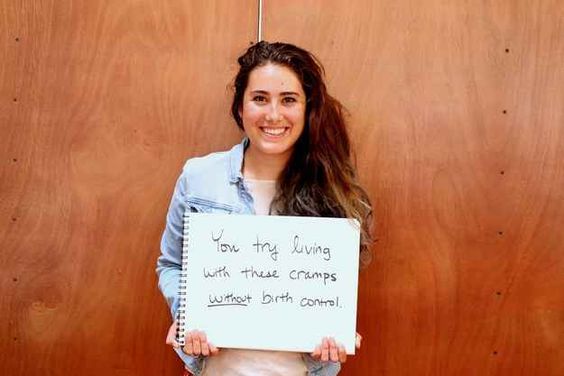 You try living
with these cramps
without birth control.